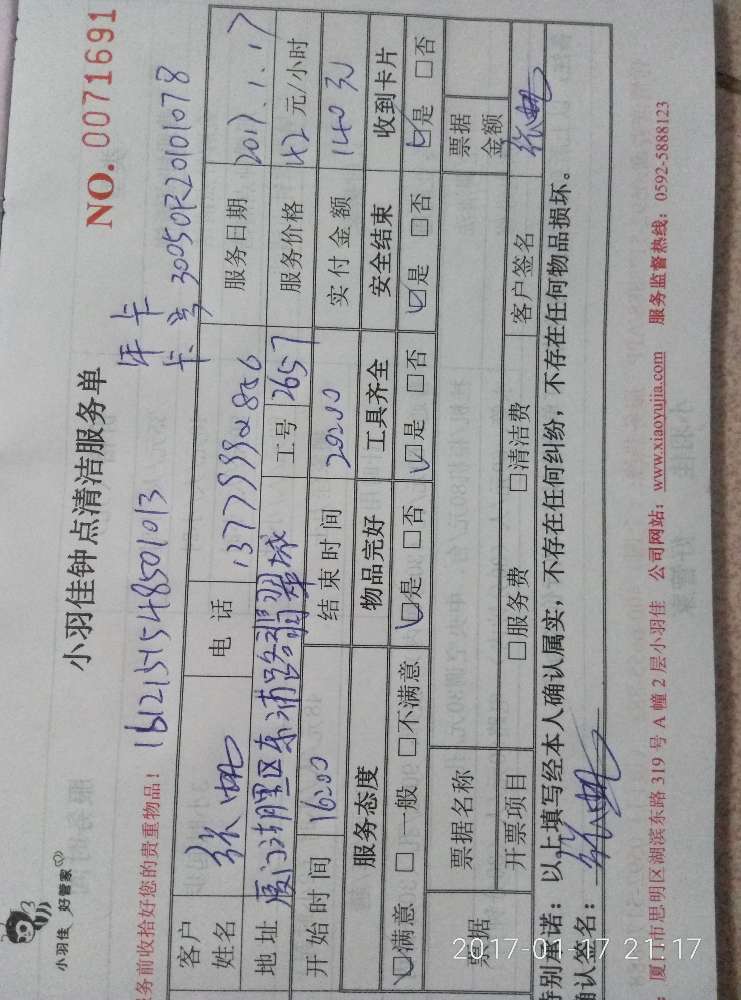 小羽佳 好管家
小羽佳钟点清洁服务单
NO. 0071691
服务前收拾好您的贵重物品!
年卡
卡号 30050R20101078
客户姓名 电话 服务日期 2017.1.17
地址 厦门湖里区东浦路翡翠城 工号 2657 服务价格 42元/小时
开始时间 16:00 结束时间 20:00 实付金额 140元
服务态度 物品完好 工具齐全 安全结束 收到卡片
☑满意 □一般 □不满意 ☑是 □否 ☑是 □否 ☑是 □否 ☑是 □否
票据 票据名称 票据金额
开票项目 □服务费 □清洁费 客户签名
特别承诺:以上填写经本人确认属实,不存在任何纠纷,不存在任何物品损坏。
确认签名:
厦门市思明区湖滨东路 319 号 A 幢 2 层小羽佳 公司网站:www.xiaoyujia.com 服务监督热线:0592-5888123
2017-01-17 21:17